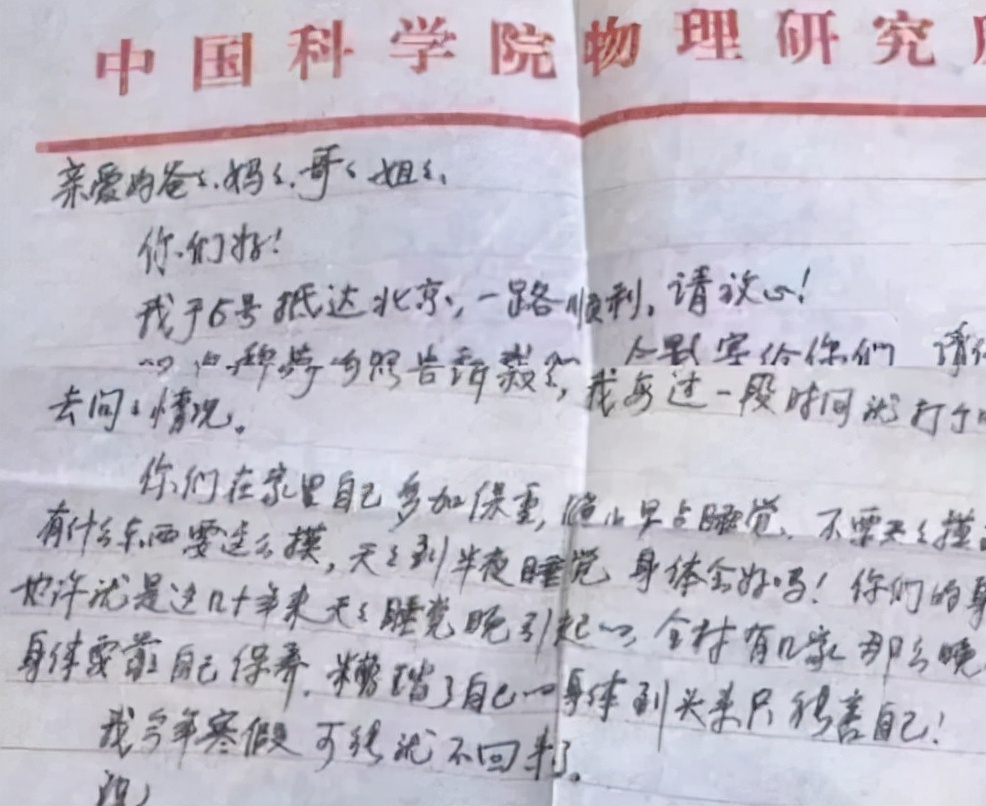 中国科学院物理研究
亲爱的爸々、妈々、哥々、姐々、
你们好!
我于6号抵达北京,一路顺利。请放心!
告诉我们,写给你们 请
去问々情况。我每过一段时间就打个
你们在家里自己多加保重,晚上早点睡觉、不要天々摸
有什么东西要这么摸,天々到半夜睡觉 身体会好吗!你们的身
也许就是这几十年来天々睡觉晚引起的,全村有几家那么晚
身体要靠自己保养,糟蹋了自己的身体到头来只能害自己!
我今年寒假可能就不回来了。